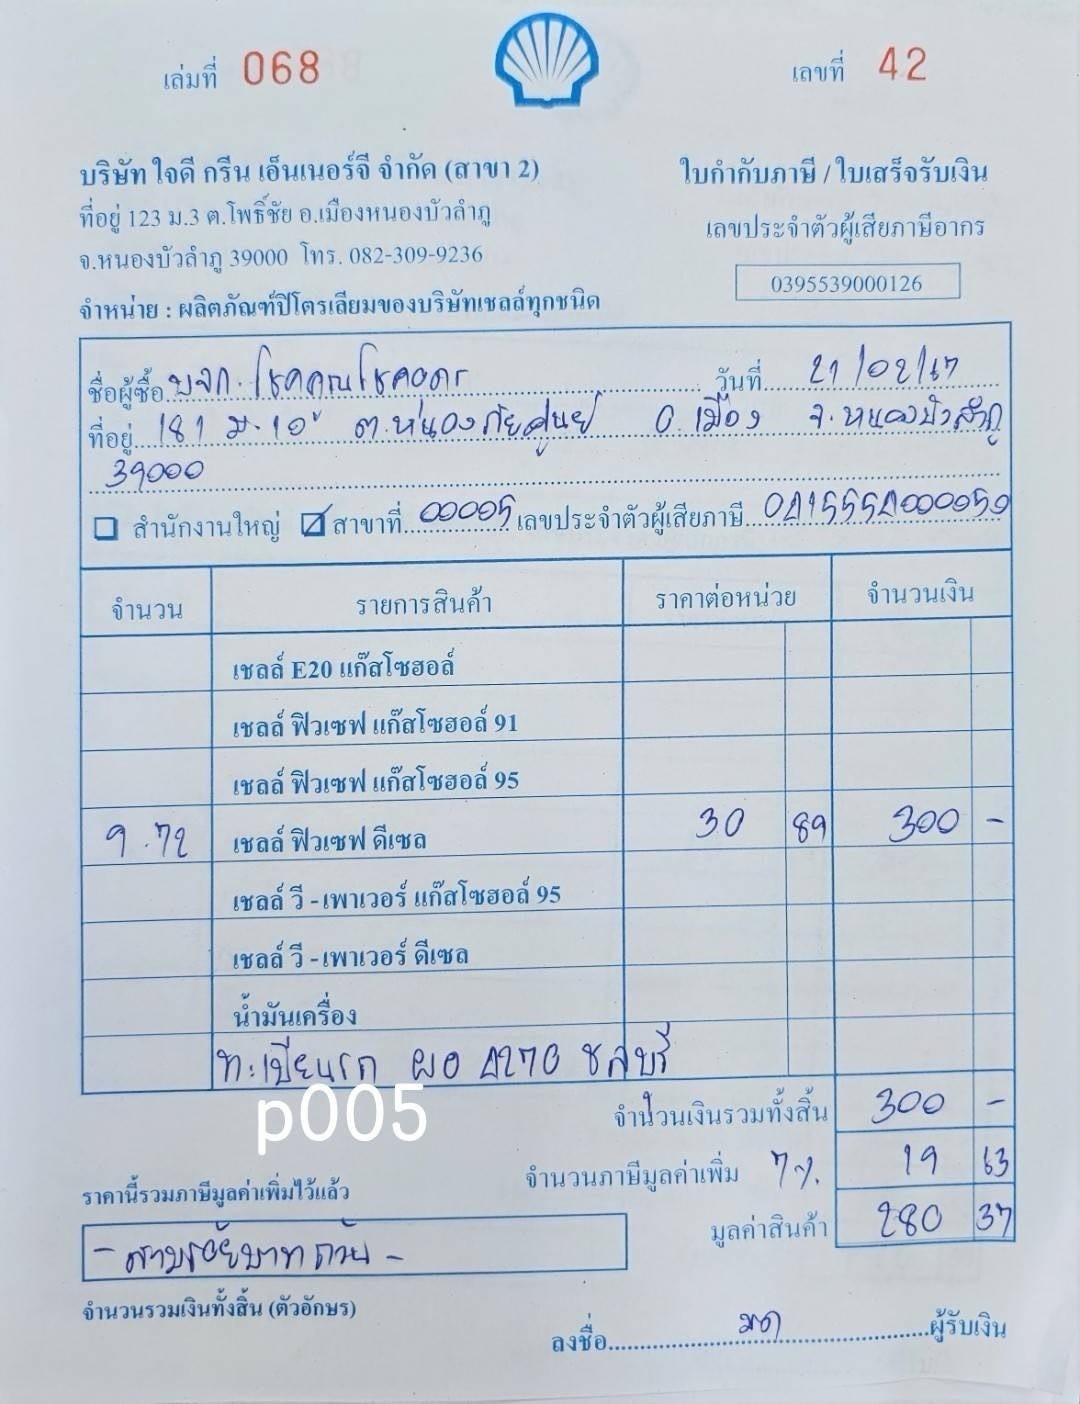 เล่มที่ 068
เลขที่ 42
บริษัท ใจดี กรีน เอ็นเนอร์จี จำกัด (สาขา 2)
ใบกำกับภาษี / ใบเสร็จรับเงิน
ที่อยู่ 123 ม.3 ต.โพธิ์ชัย อ.เมืองหนองบัวลำภู
เลขประจำตัวผู้เสียภาษีอากร
จ.หนองบัวลำภู 39000 โทร. 082-309-9236
0395539000126
จำหน่าย : ผลิตภัณฑ์ปิโตรเลียมของบริษัทเชลล์ทุกชนิด
ชื่อผู้ซื้อ บจก. โชคคุณโชคอดร วันที่ 21/02/67
ที่อยู่ 181 ม.10 ต.หนองภัยศูนย์ อ.เมือง จ.หนองบัวลำภู
39000
สำนักงานใหญ่ สาขาที่ 00005 เลขประจำตัวผู้เสียภาษี 0415554000059
จำนวน รายการสินค้า ราคาต่อหน่วย จำนวนเงิน
เชลล์ E20 แก๊สโซฮอล์
เชลล์ ฟิวเซฟ แก๊สโซฮอล์ 91
เชลล์ ฟิวเซฟ แก๊สโซฮอล์ 95
9.72 เชลล์ ฟิวเซฟ ดีเซล 30 89 300 -
เชลล์ วี - เพาเวอร์ แก๊สโซฮอล์ 95
เชลล์ วี - เพาเวอร์ ดีเซล
น้ำมันเครื่อง
ทะเบียนรถ ผอ 4270 ชลบุรี
p005
จำนวนเงินรวมทั้งสิ้น 300 -
จำนวนภาษีมูลค่าเพิ่ม 7%. 19 63
ราคานี้รวมภาษีมูลค่าเพิ่มไว้แล้ว
มูลค่าสินค้า 280 37
- สามร้อยบาทถ้วน -
จำนวนรวมเงินทั้งสิ้น (ตัวอักษร)
ลงชื่อ ผู้รับเงิน